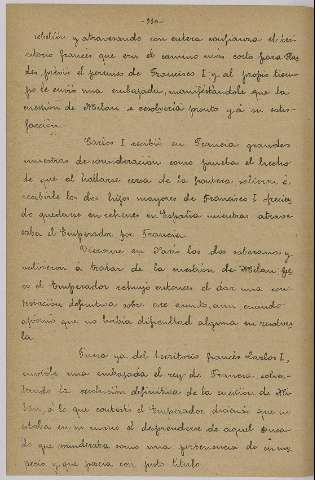 rebelión y atravesando con entera confianza el te-
rritorio francés que era el camino mas corto para Flan
des previo el permiso de Francisco I y al propio tiem-
po le envió una embajada, manifestándole que la
cuestión de Milan se resolvería pronto y á su satis-
facción.
Carlos I recibió en Francia grandes
muestras de consideración como prueba el hecho
de que al hallarse cerca de la frontera, salieron á
recibirle los dos hijos mayores de Francisco I
do quedarse en rehenes en España mientras atrave-
saba el Emperador por Francia.
Vieronse en Paris los dos soberanos y
volvieron á tratar de la cuestión de Milan
el Emperador rehuyó entonces el dar una con-
testación definitiva sobre este asunto, aun cuando
que no habia dificultad alguna en resolver
la.
Fuera ya del territorio francés Carlos I,
envióle una embajada el rey de Francia solici-
tando la resolución definitiva de la cuestion de Mi-
lan, á lo que contestó el Emperador diciendo que no
estaba en su animo el desprenderse de aquel Duca-
do que consideraba como una pertenencia de su im-
perio y que poseia con justo título